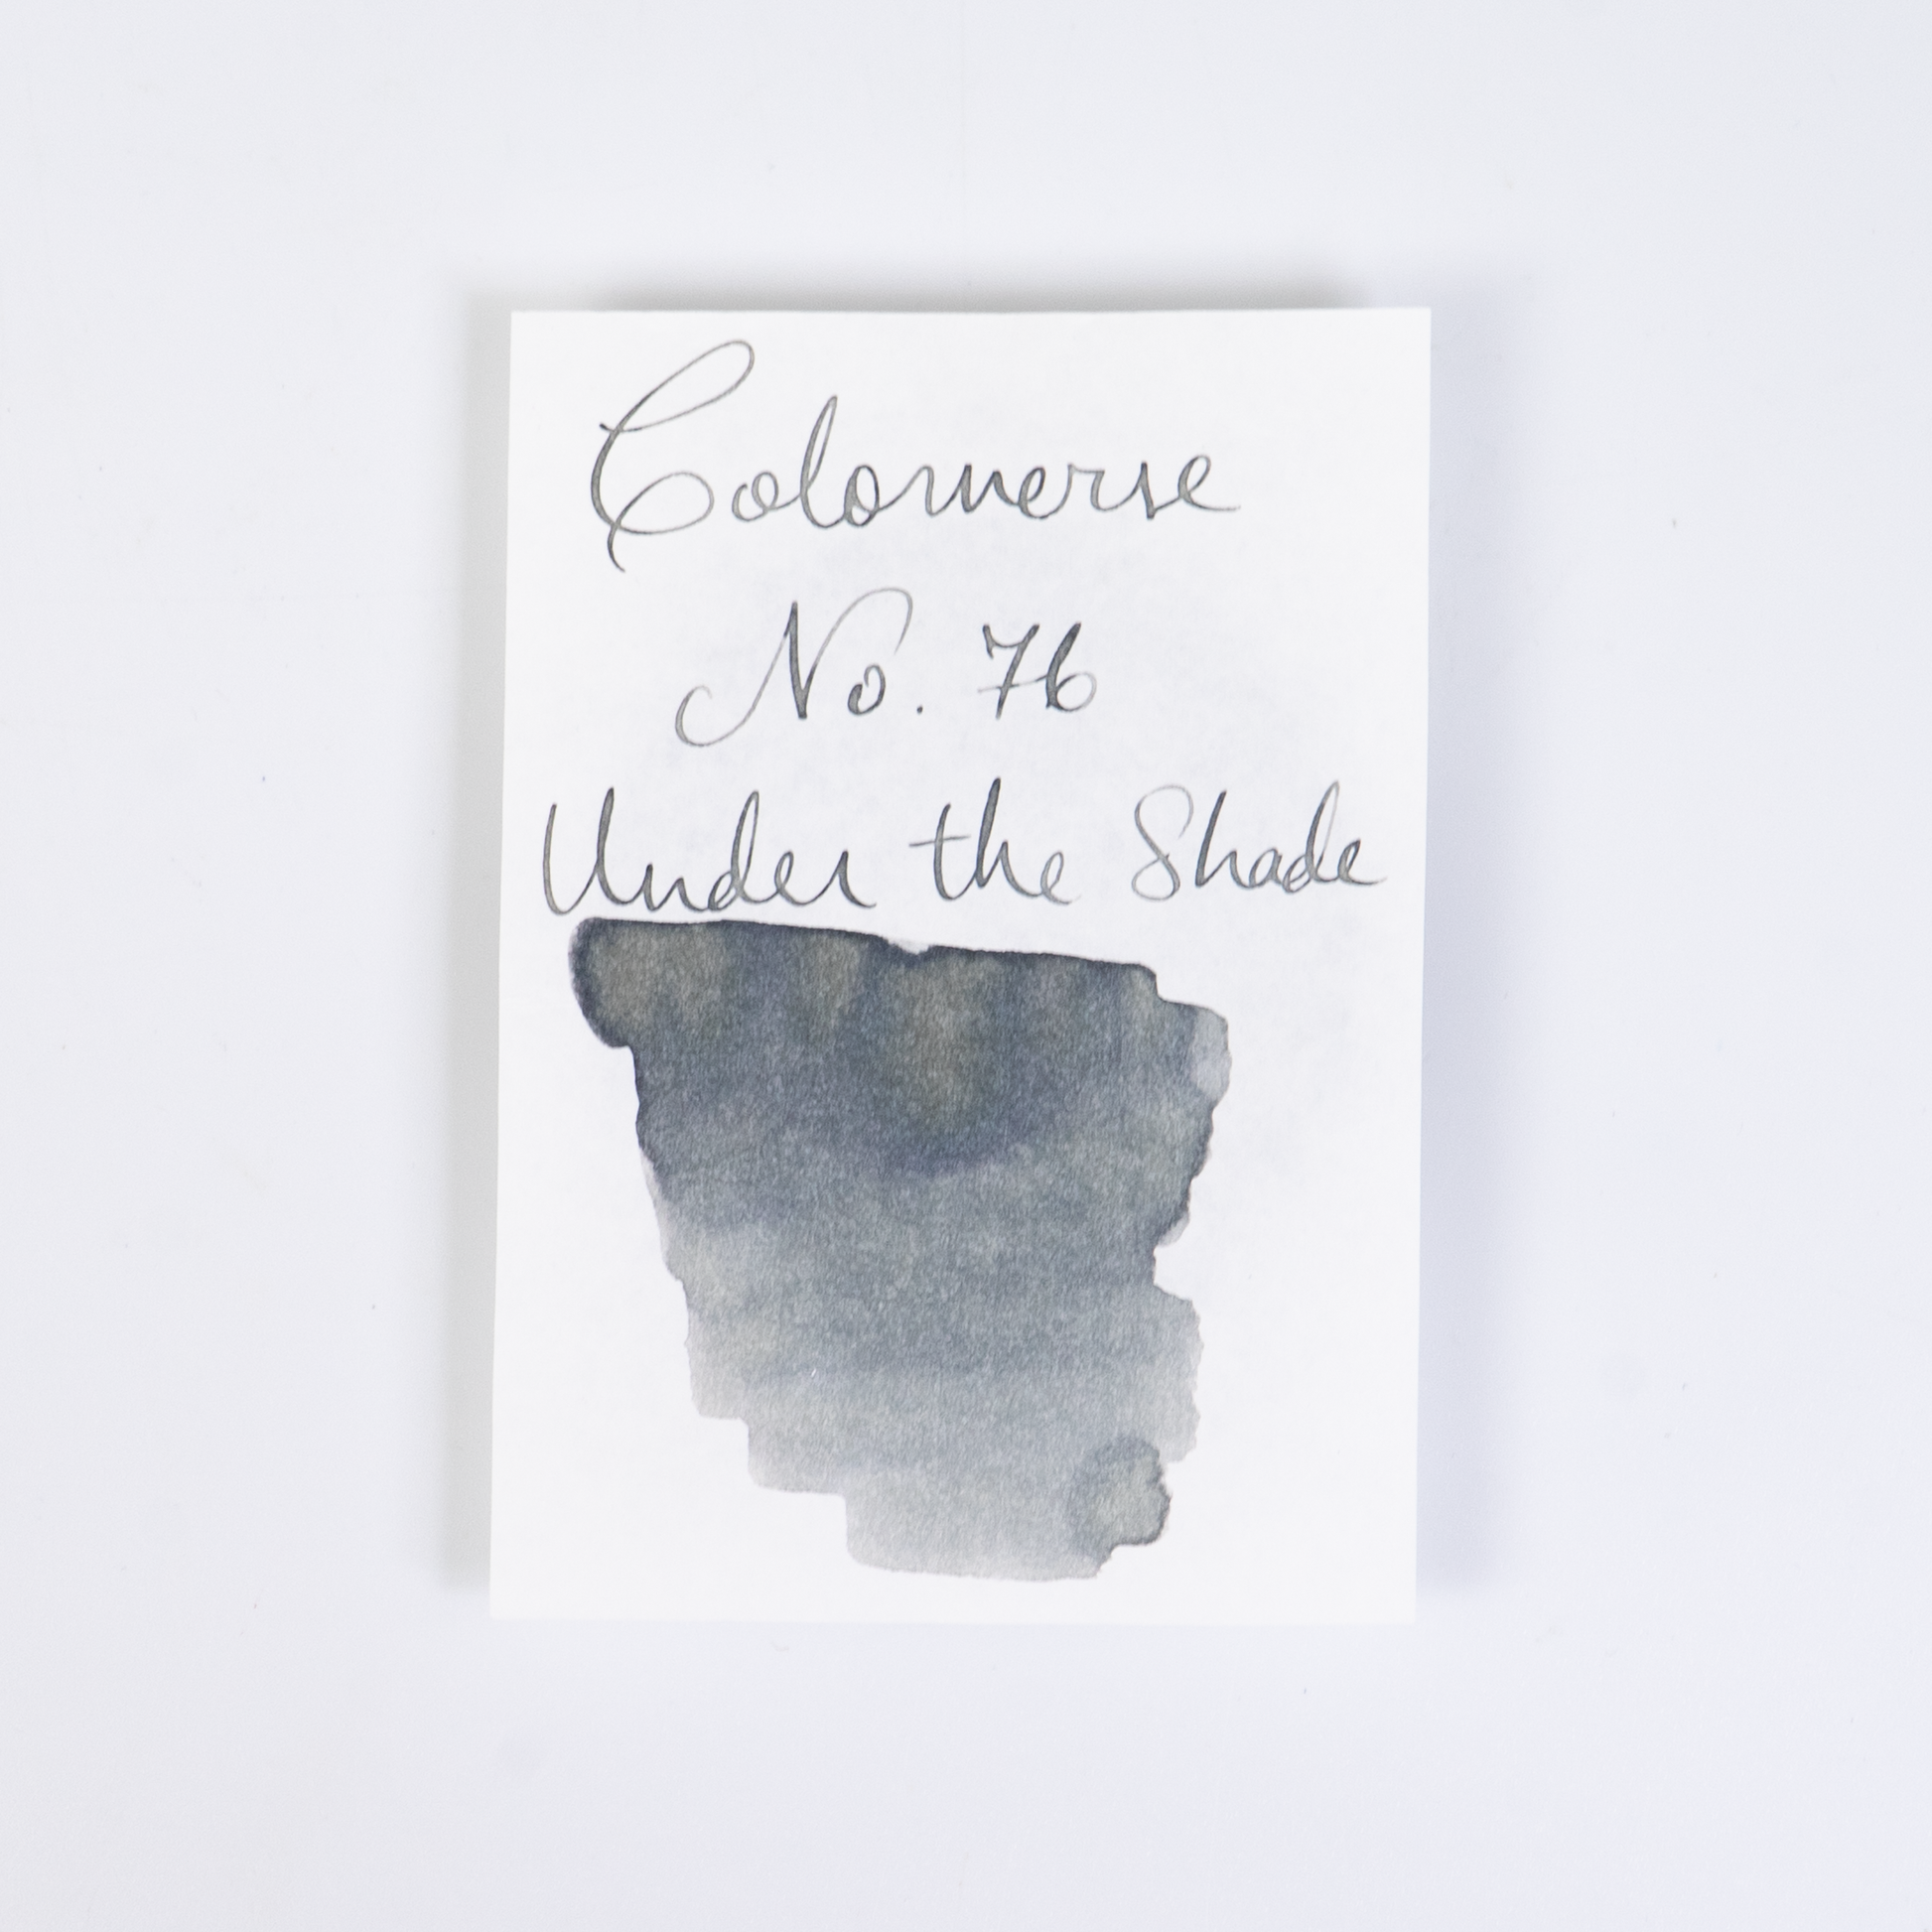 Colorverse
No. 76
Under the Shade